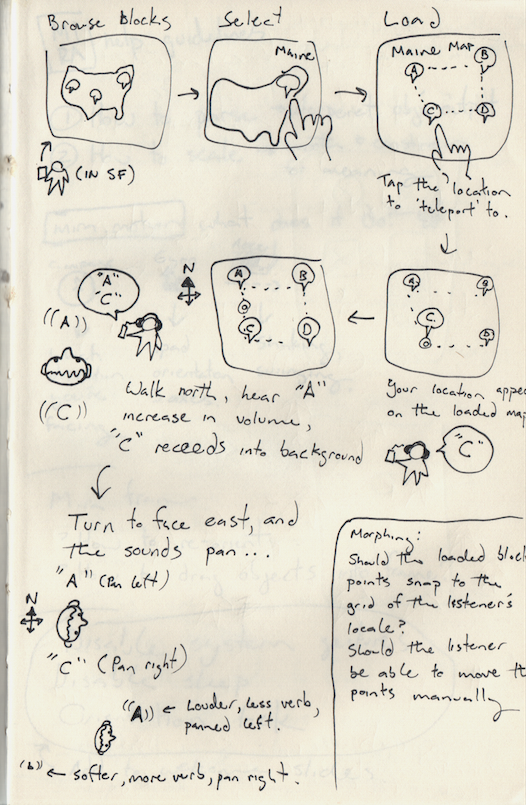 Browse Blocks
Select
Load
Maine
Maine Map
A
B
C
D
(IN SF)
Tap the location
to 'teleport' to.
N
"A"
"C"
((A))
((C))
A
B
C
D
A
B
C
D
Walk north, hear "A"
increase in volume,
"C" receeds into background
Your location appe
on the loaded map
"C"
Turn to face east, and
the sounds pan...
"A" (Pan left)
N
"C" (Pan right)
((A)) ← Louder, less verb,
panned left.
← softer, more verb, pan right.
Morphing:
Should the loaded block
points snap to the
grid of the listener's
locale?
Should the listener
be able to move th
points manually